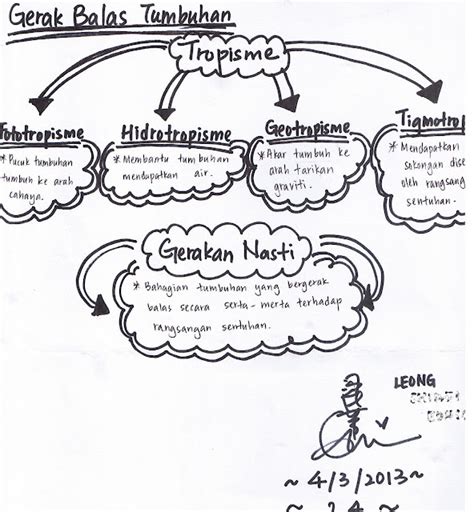 Gerak Balas Tumbuhan
Tropisme
Fototropisme
* Pucuk tumbuhan
tumbuh ke arah
cahaya.
Hidrotropisme
* Membantu tumbuhan
mendapatkan air.
Geotropisme
* Akar tumbuh ke
arah tarikan
graviti.
Tigmotrop
* Mendapatkan
sokongan dise
oleh rangsang
sentuhan.
Gerakan Nasti
* Bahagian tumbuhan yang bergerak
balas secara serta-merta terhadap
rangsangan sentuhan.
LEONG
~ 4/3/2013 ~